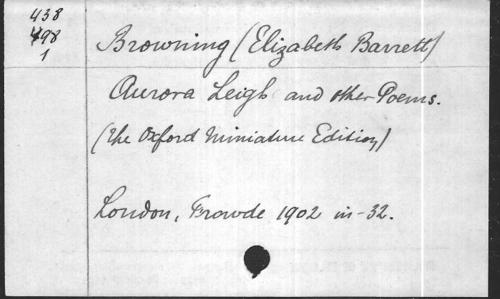 438
498
1
Browning (Elizabeth Barrett)
Aurora Leigh and other Poems.
(The Oxford Miniature Edition)
London, Frowde 1902 in-32.